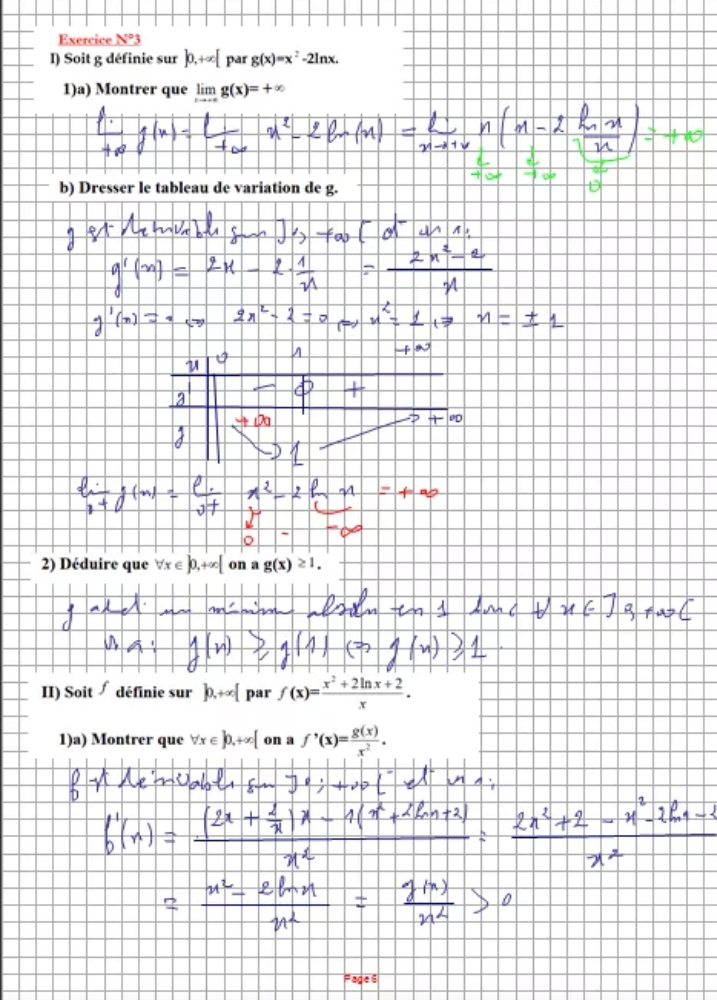 Exercice N°3
I) Soit g définie sur ]0,+∞[ par g(x)=x²-2lnx.
1)a) Montrer que lim x→+∞ g(x)=+∞
lim +∞ g(x) = lim +∞ x² - 2 ln(x) = lim x→+∞ x(x - 2 ln x / x) = +∞
+∞ +∞ 0
b) Dresser le tableau de variation de g.
g est dérivable sur ]0, +∞[ et on a:
g'(x) = 2x - 2·1/x = (2x²-2)/x
g'(x)=0 ⇔ 2x²-2=0 ⇔ x²=1 ⇔ x = ±1
x 0 1 +∞
g' - 0 +
g +∞ 1 +∞
lim 0+ g(x) = lim 0+ x² - 2 ln x = +∞
0 - -∞
2) Déduire que ∀x∈]0,+∞[ on a g(x) ≥1.
g admet un minimum absolu en 1 donc ∀ x ∈ ]0, +∞[
on a: g(x) ≥ g(1) ⇔ g(x) ≥ 1
II) Soit f définie sur ]0,+∞[ par f(x)=(x²+2lnx+2)/x.
1)a) Montrer que ∀x∈]0,+∞[ on a f'(x)=g(x)/x².
f est dérivable sur ]0; +∞[ et on a:
f'(x) = ((2x + 2/x)x - 1(x²+2lnx+2))/x² = (2x²+2 - x² - 2lnx - 2)/x²
= (x² - 2lnx)/x² = g(x)/x² > 0
Page 6